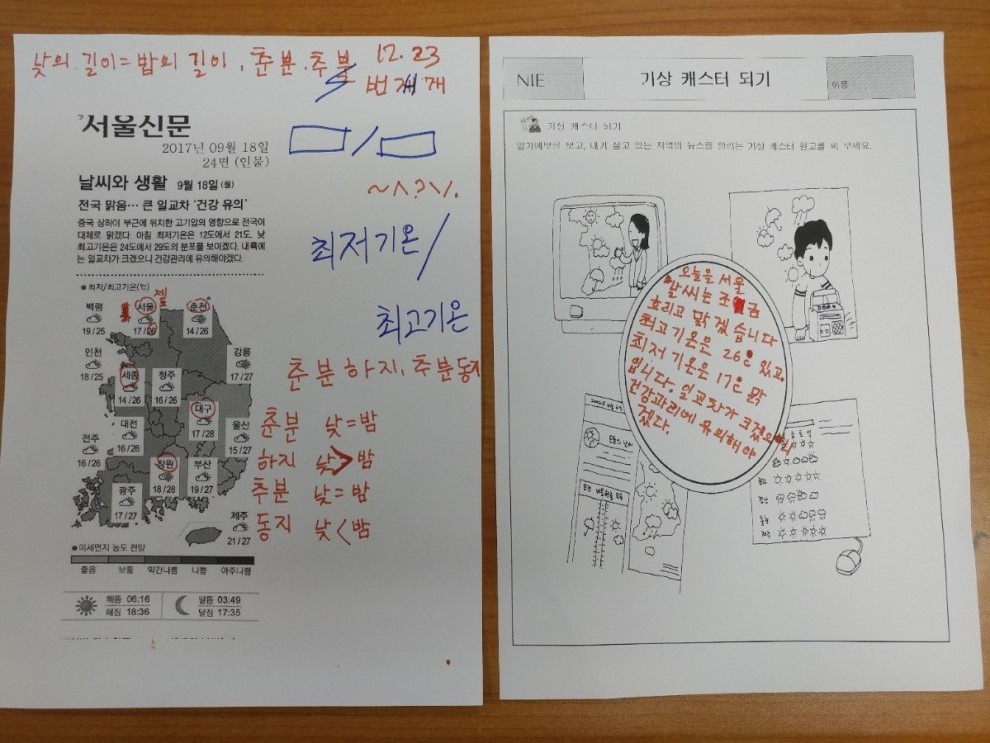 낮의 길이=밤의 길이, 춘분, 추분 12.23
번개
서울신문
2017년 09월 18일
24면 (인물)
날씨와 생활 9월 18일(월)
전국 맑음… 큰 일교차 '건강 유의'
중국 상하이 부근에 위치한 고기압의 영향으로 전국이
대체로 맑겠다. 아침 최저기온은 12도에서 21도, 낮
최고기온은 24도에서 29도의 분포를 보이겠다. 내륙에
는 일교차가 크겠으니 건강관리에 유의해야겠다.
●최저/최고기온(℃)
백령
19/25
서울
17/26
춘천
14/26
인천
18/25
강릉
17/27
세종
14/26
청주
16/26
대전
16/26
대구
17/28
울산
15/27
전주
16/26
창원
18/28
부산
19/27
광주
17/27
제주
21/27
●미세먼지 농도 전망
좋음 보통 약간나쁨 나쁨 아주나쁨
해뜸 06:16
해짐 18:36
달뜸 03:49
달짐 17:35
~∧?\/.
최저기온/
최고기온
춘분하지, 추분동지
춘분 낮=밤
하지 낮>밤
추분 낮=밤
동지 낮<밤
NIE
기상 캐스터 되기
이름
기상 캐스터 되기
일기예보를 보고, 내가 살고 있는 지역의 뉴스를 알리는 기상 캐스터 원고를 써 보세요.
오늘을 서울
날씨는 조금
흐리고 맑겠습니다
최고기온은 26℃ 있고.
최저 기온은 17℃
입니다. 일교차가 크겠으니
건강과리에 유의해야
겠다.